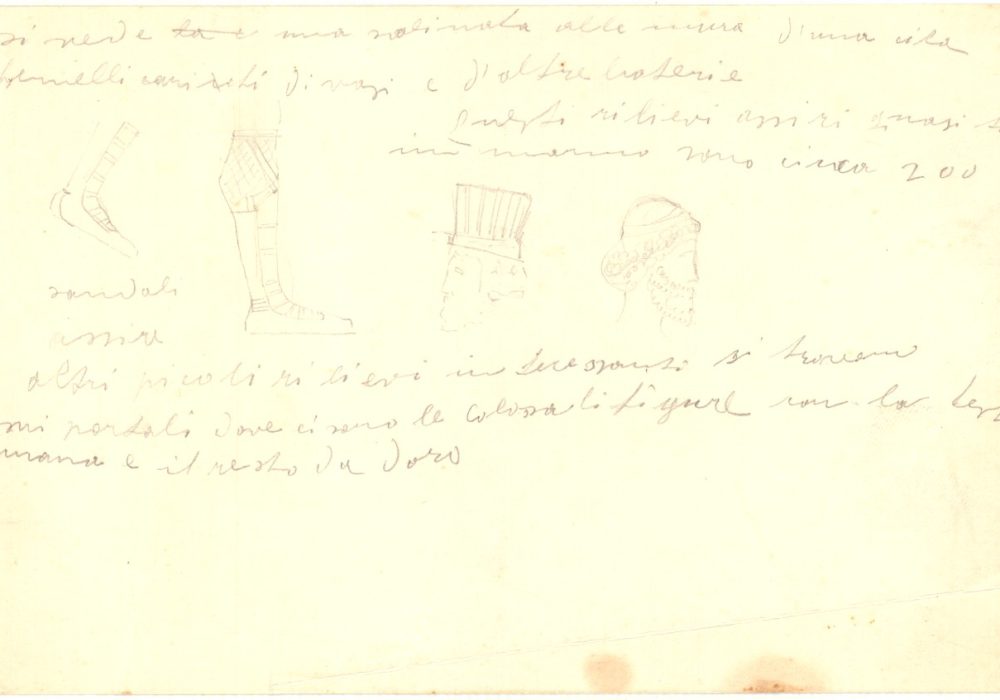 si vede e una salinata alle mura d'una cita
di vasi e d'altre
questi rilievi assiri quasi
in marmo sono circa 200
sandali
assire
altri picoli rilievi si trovano
portali dove ci sono le colossali figure con la
e il resto da